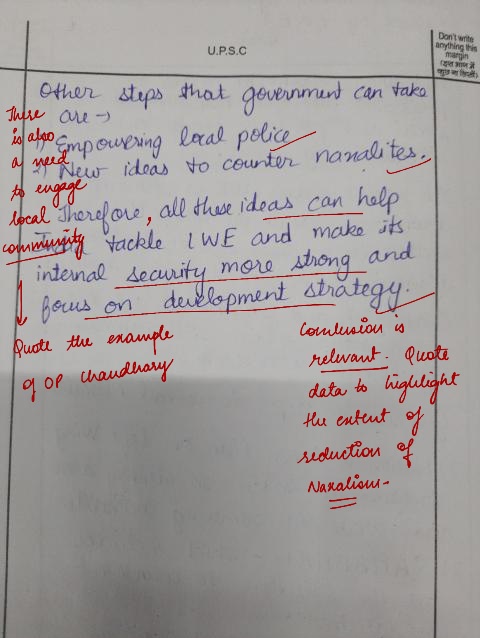 U.P.S.C
Don't write
anything this
margin
Other steps that government can take
are →
1) Empowering local police
2) New ideas to counter naxalites.
Therefore, all these ideas can help
India tackle LWE and make its
internal security more strong and
focus on development strategy.
There
is also
a need
to engage
local
community
Quote the example
of OP Chaudhary
Conclusion is
relevant. Quote
data to highlight
the extent of
reduction of
Naxalism-